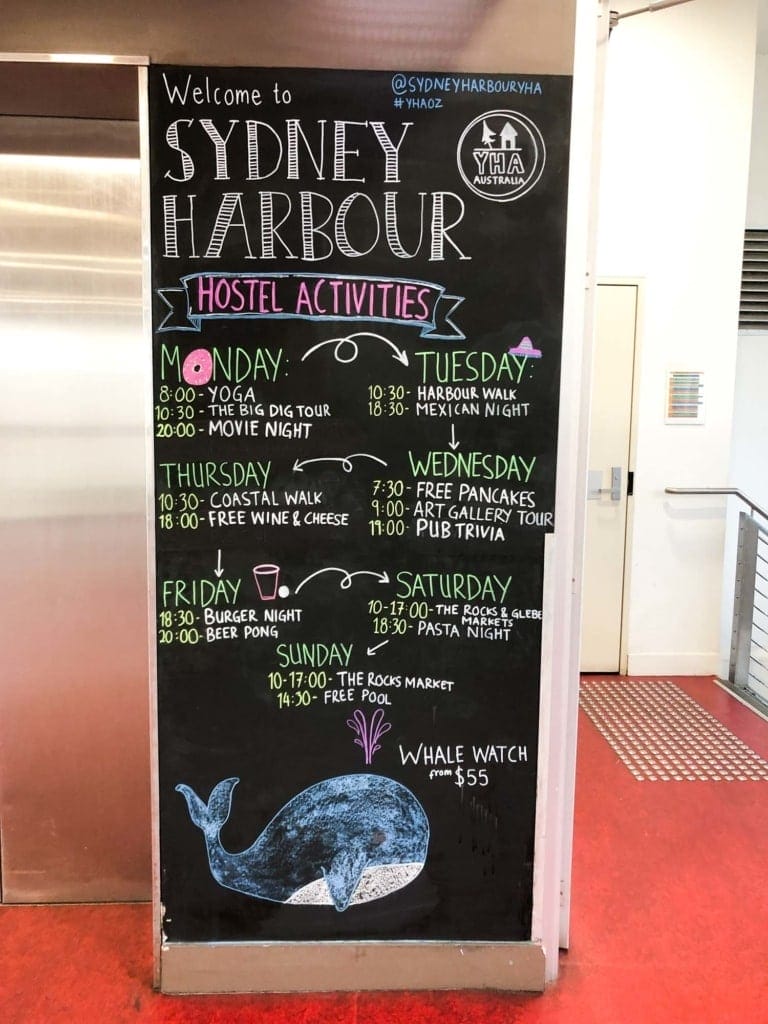 Welcome to
@SYDNEYHARBOURYHA
#YHAOZ
SYDNEY
HARBOUR
YHA
AUSTRALIA
HOSTEL ACTIVITIES
MONDAY:
8:00 - YOGA
10:30 - THE BIG DIG TOUR
20:00 - MOVIE NIGHT
TUESDAY:
10:30 - HARBOUR WALK
18:30 - MEXICAN NIGHT
WEDNESDAY
7:30 - FREE PANCAKES
9:00 - ART GALLERY TOUR
19:00 - PUB TRIVIA
THURSDAY
10:30 - COASTAL WALK
18:00 - FREE WINE & CHEESE
FRIDAY
18:30 - BURGER NIGHT
20:00 - BEER PONG
SATURDAY
10-17:00 - THE ROCKS & GLEBE
MARKETS
18:30 - PASTA NIGHT
SUNDAY
10-17:00 - THE ROCKS MARKET
14:30 - FREE POOL
WHALE WATCH
from $55